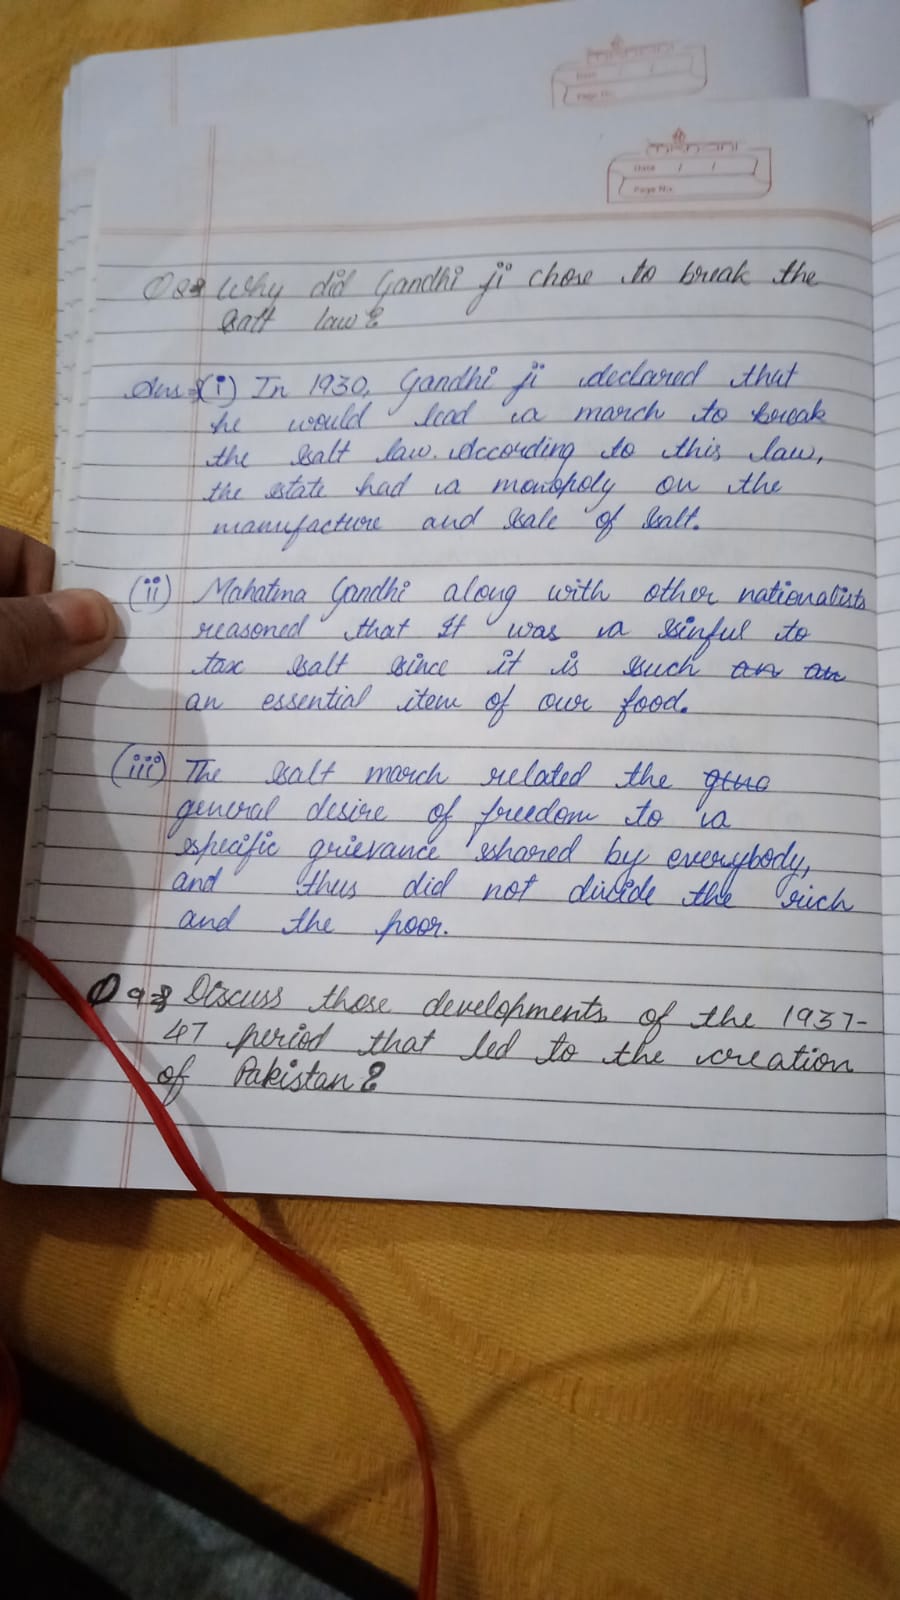 Date / /
Page No.
Date / /
Page No.
Q 8 Why did Gandhi ji chose to break the
salt law?
Ans =(i) In 1930, Gandhi ji declared that
he would lead a march to break
the salt law. According to this law,
the state had a monopoly on the
manufacture and sale of salt.
(ii) Mahatma Gandhi along with other nationalists
reasoned that It was a sinful to
tax salt since it is such an an
an essential item of our food.
(iii) The salt march related the
general desire of freedom to a
specific grievance shared by everybody,
and thus did not divide the rich
and the poor.
Q 9 Discuss those developments of the 1937-
47 period that led to the creation
of Pakistan?